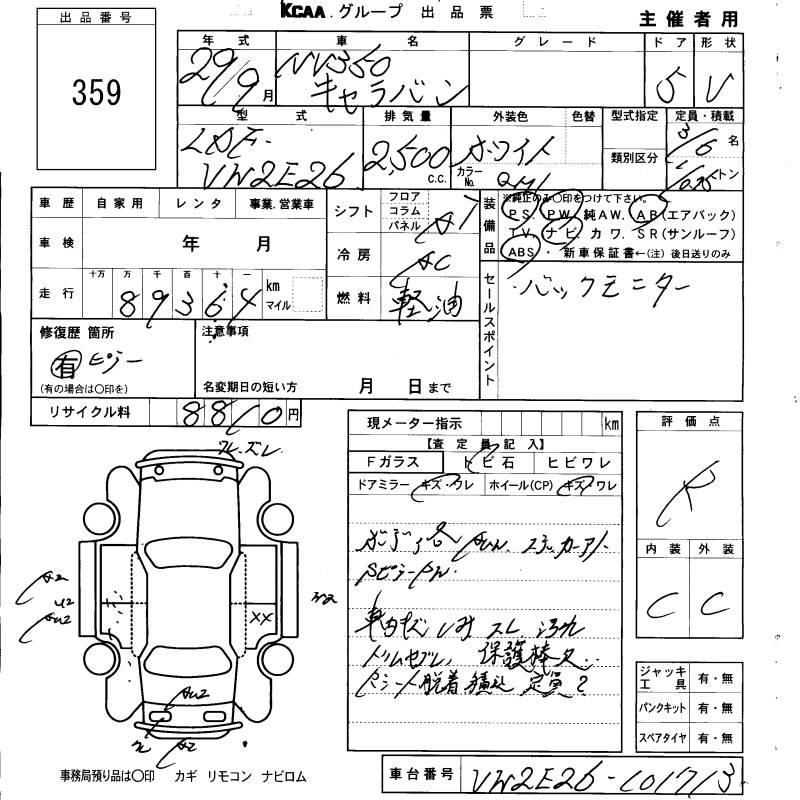 KCAA.グループ 出品票
主催者用
出品番号
359
年式 車名 グレード ドア 形状
29/9月 NV350 キャラバン 5 V
型式 排気量 外装色 色替 型式指定 定員・積載
LDF-VW2E26 2,500 C.C. ホワイト カラーNo. QM1 類別区分 3/6名
トン
車歴 自家用 レンタ 事業.営業車 シフト フロア コラム パネル AT
装備品 ※純正のみ○印をつけて下さい。
PS. PW. 純AW. AB(エアバック)
TV. ナビ. カワ. SR(サンルーフ)
ABS ・ 新車保証書←(注) 後日送りのみ
車検 年 月 冷房 AC
走行 十万 万 千 百 十 一
89364 km マイル 燃料 軽油
セールスポイント ・バックモニター
修復歴 箇所 注意事項
有 ピラー
(有の場合は○印を) 名変期日の短い方 月 日まで
リサイクル料 8810円
現メーター指示 km
【査定員記入】
Fガラス トビ石 ヒビワレ
ドアミラー キズ・ワレ ホイール(CP) キズ・ワレ
評価点
R
内装 外装
C C
ワレ.ズレ
A2
U2
AU2
XX
AU2
A2
車内キズ シミ スレ 汚れ
保護棒欠
脱着 積込 定員2
ジャッキ工具 有・無
パンクキット 有・無
スペアタイヤ 有・無
事務局預り品は○印 カギ リモコン ナビロム
車台番号 VW2E26-101713